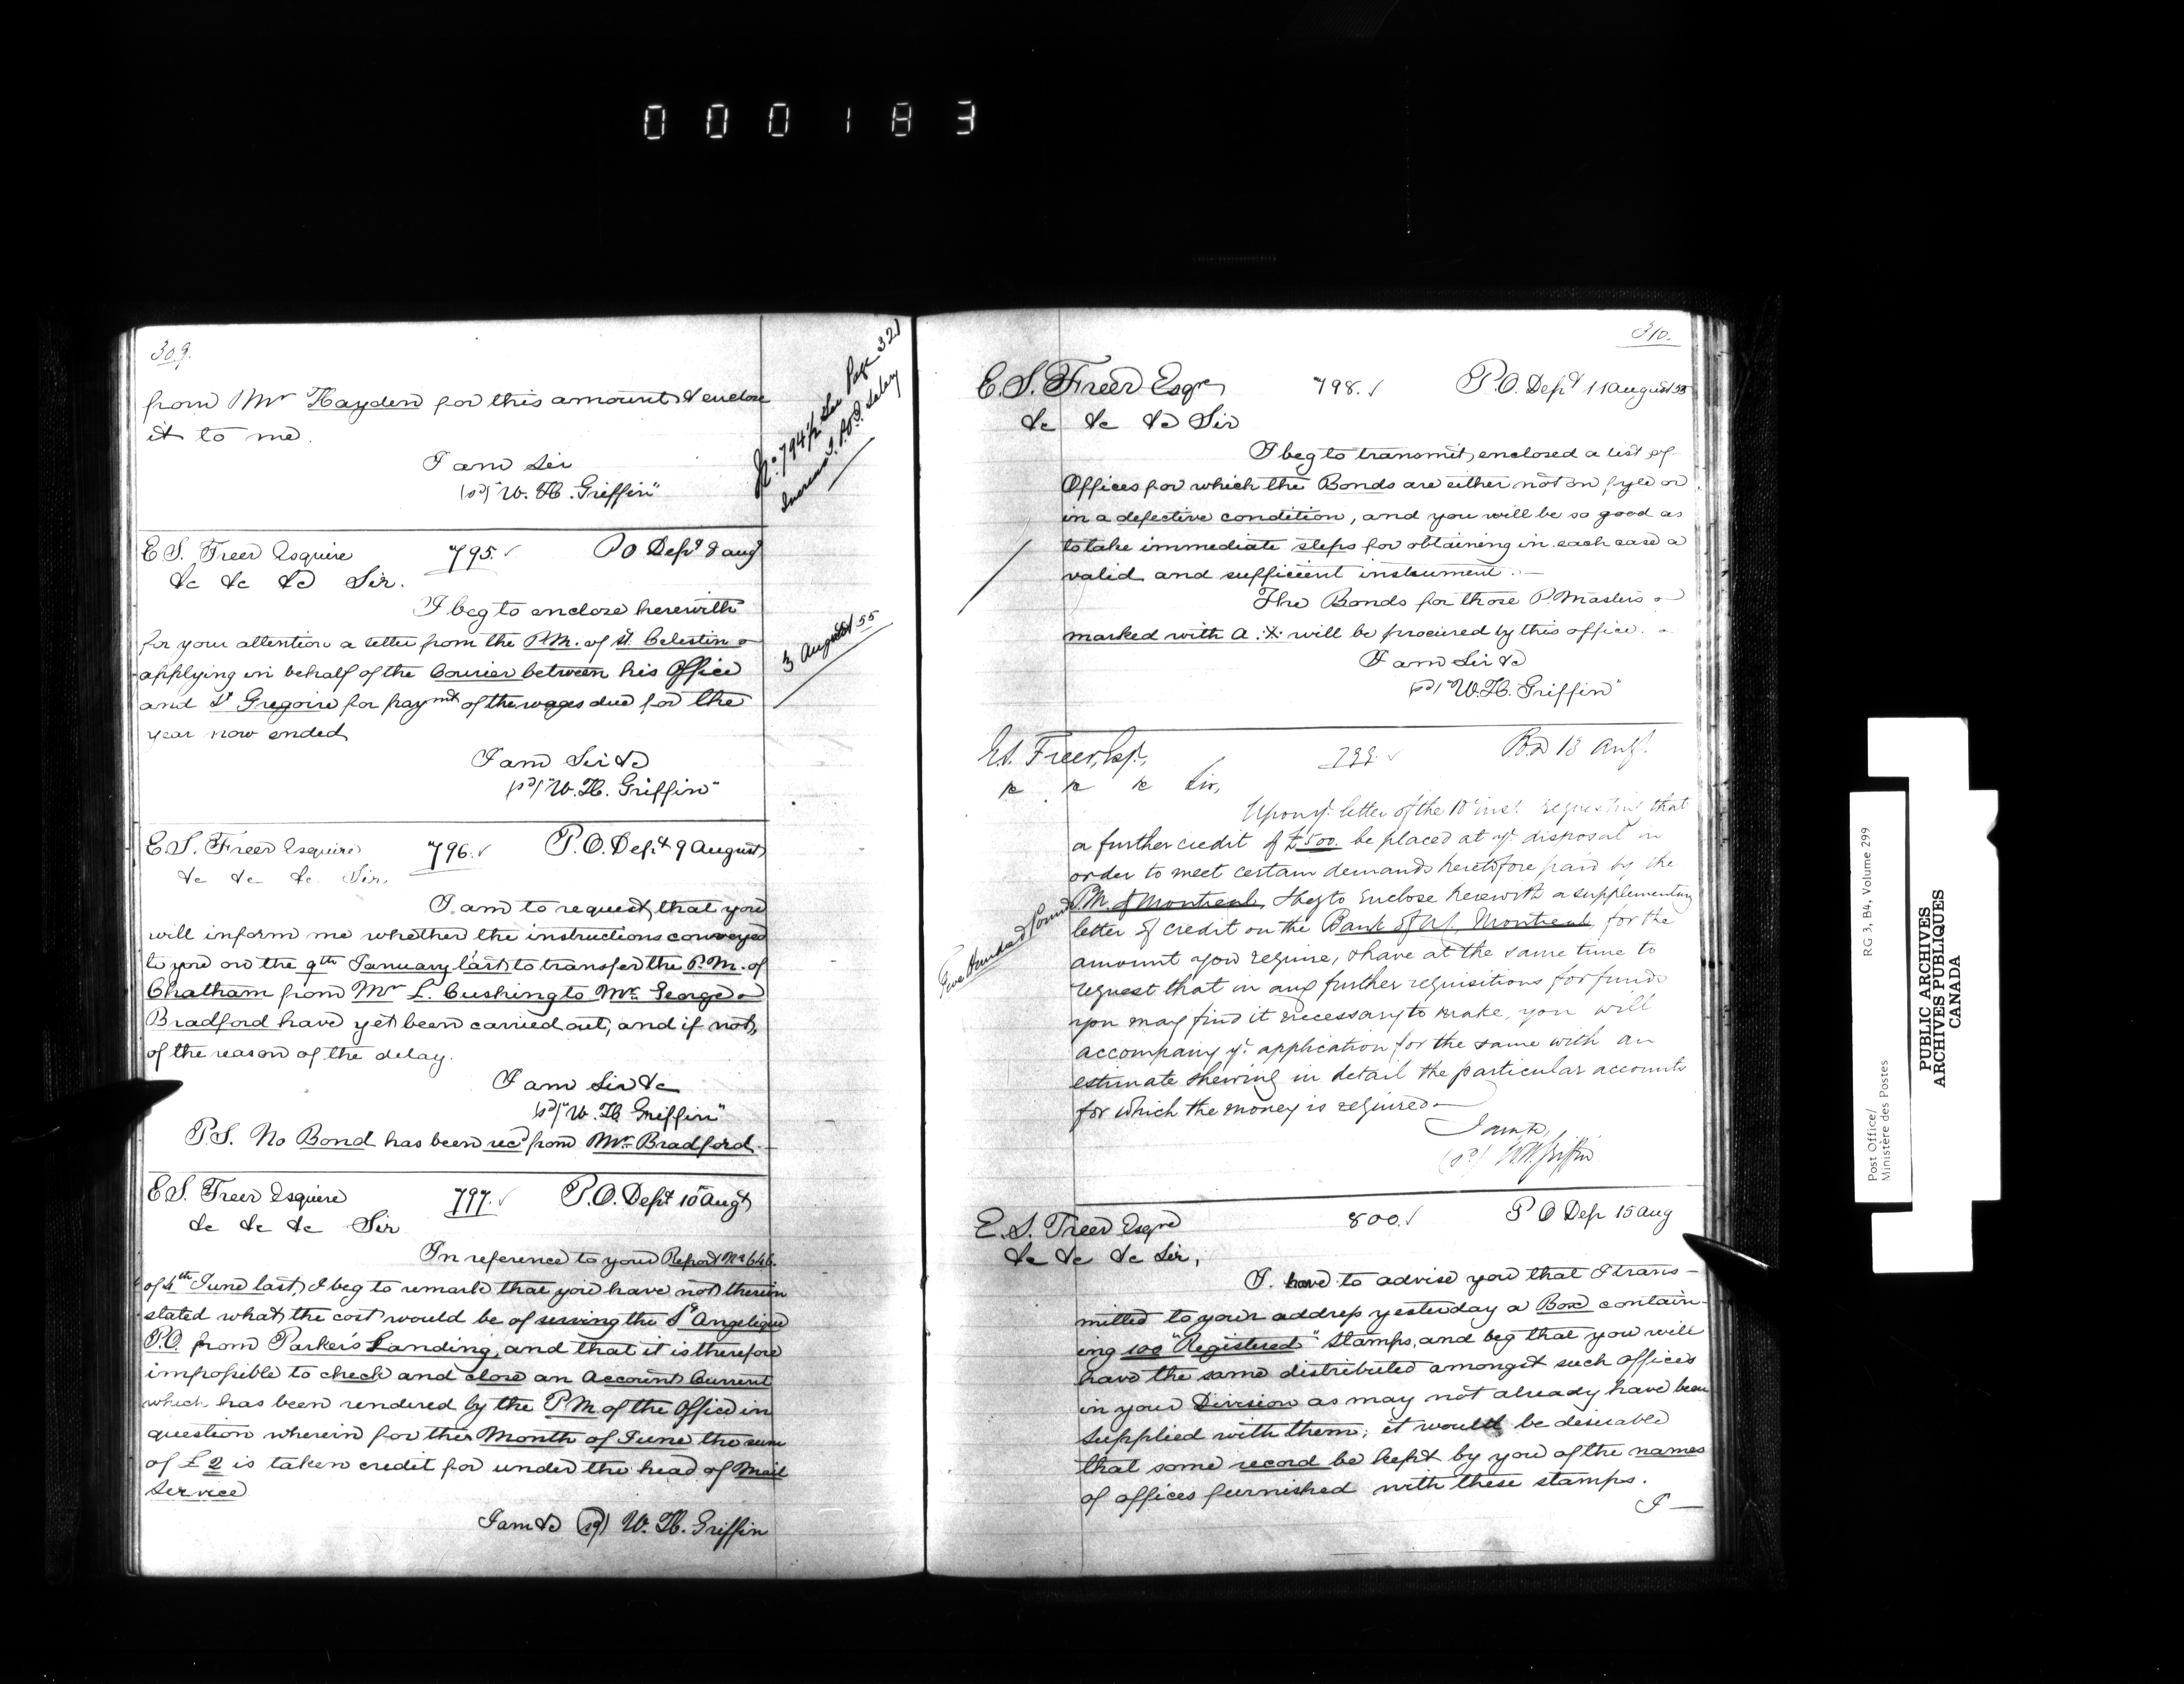 000183
309.
from Mr Hayden for this amount & enclose
it to me.
I am Sir
(sd) "W. H. Griffin"
No. 794½ See Page 321
Increase Salary
E S. Freer Esquire 795. P O Dept 8 Aug
&c &c &c Sir.
I beg to enclose herewith
for your attention a letter from the P.M. of St. Celestin
applying in behalf of the Courier between his Office
and St Gregoire for paymt of the wages due for the
year now ended
3 August 55
I am Sir &c
(sd) "W. H. Griffin"
E. S. Freer Esquire 796. P. O. Dept 9 August
&c &c &c Sir.
I am to request that you
will inform me whether the instructions conveyed
to you on the 9th January last to transfer the P.M. of
Chatham from Mr L. Cushing to Mr. George
Bradford have yet been carried out, and if not,
of the reason of the delay.
I am Sir &c
(sd) "W. H Griffin"
P.S. No Bond has been recd from Mr. Bradford.
E S. Freer Esquire 797. P. O. Dept 10 Augt
&c &c &c Sir
In reference to your Report No 646.
of 4th June last, I beg to remark that you have not therein
stated what the cost would be of serving the St Angelique
P.O. from Parker's Landing, and that it is therefore
impossible to check and close an Account Current
which has been rendered by the P M. of the Office in
question wherein for the Month of June the sum
of £2 is taken credit for under the head of Mail
Service
I am &c (sd) W. H. Griffin
310.
E. S. Freer Esqre 798. P. O. Dept 11 August 55
&c &c &c Sir
I beg to transmit, enclosed a list of
Offices for which the Bonds are either not on fyle or
in a defective condition, and you will be so good as
to take immediate steps for obtaining in each case a
valid and sufficient instrument.
The Bonds for those P. Masters
marked with a .X. will be procured by this office.
I am Sir &c
(sd) "W. H. Griffin"
E. S. Freer, Esq., 799. P.O.D 13 Augt.
&c &c &c Sir,
Upon yr. letter of the 10 inst. requesting that
a further credit of £500. be placed at yr. disposal in
order to meet certain demands heretofore paid by the
P.M. of Montreal, I beg to enclose herewith a supplementary
letter of credit on the Bank of Montreal, for the
Five Hundred Pounds
amount you require, & have at the same time to
request that in any further requisitions for funds
you may find it necessary to make, you will
accompany yr. application for the same with an
estimate shewing in detail the particular accounts
for which the money is required
I am &c,
(sd) W. H. Griffin
E. S. Freer Esqre 800. P O Dep 15 Aug
&c &c &c Sir,
I. have to advise you that I trans-
mitted to your address yesterday a Box contain-
ing 100 "Registered" Stamps, and beg that you will
have the same distributed amongst such offices
in your Division as may not already have been
supplied with them; it would be desirable
that some record be kept by you of the names
of offices furnished with these stamps.
I —
Post Office/
Ministère des Postes
RG 3, B4, Volume 299
PUBLIC ARCHIVES
ARCHIVES PUBLIQUES
CANADA